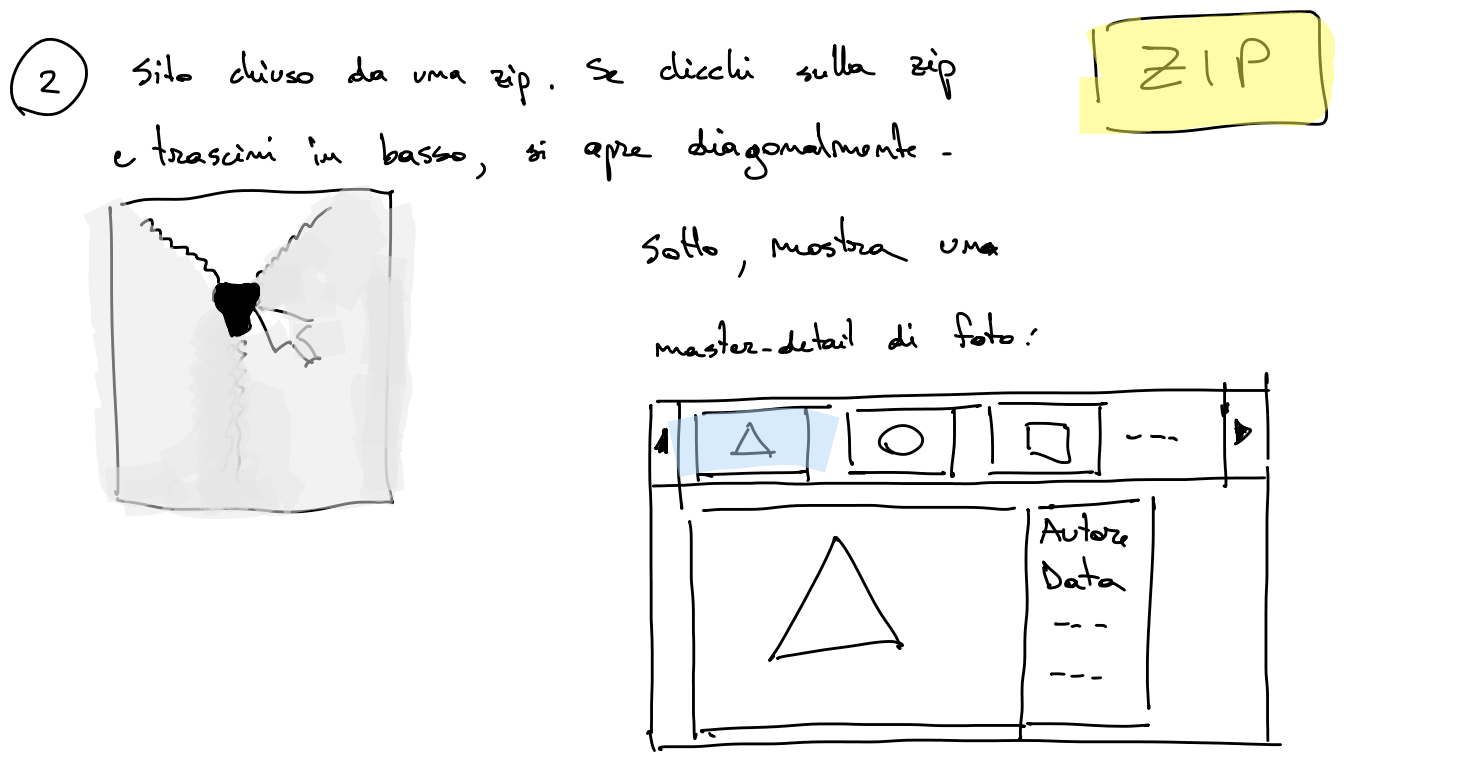 2 Sito chiuso da una zip. Se clicchi sulla zip
ZIP
e trascini in basso, si apre diagonalmente.
Sotto, mostra una
master-detail di foto:
Autore
Data